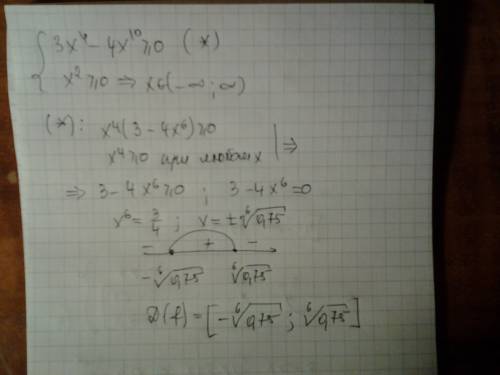 { 3x⁴ - 4x¹⁰ ⩾ 0 (*)
x² ⩾ 0 ⇒ x ∈ (-∞; ∞)
(*): x⁴(3 - 4x⁶) ⩾ 0
x⁴ ⩾ 0 при любых x | ⇒
⇒ 3 - 4x⁶ ⩾ 0 ; 3 - 4x⁶ = 0
x⁶ = 3/4 ; x = ±⁶√0,75
- + -
-⁶√0,75 ⁶√0,75
D(f) = [-⁶√0,75 ; ⁶√0,75]